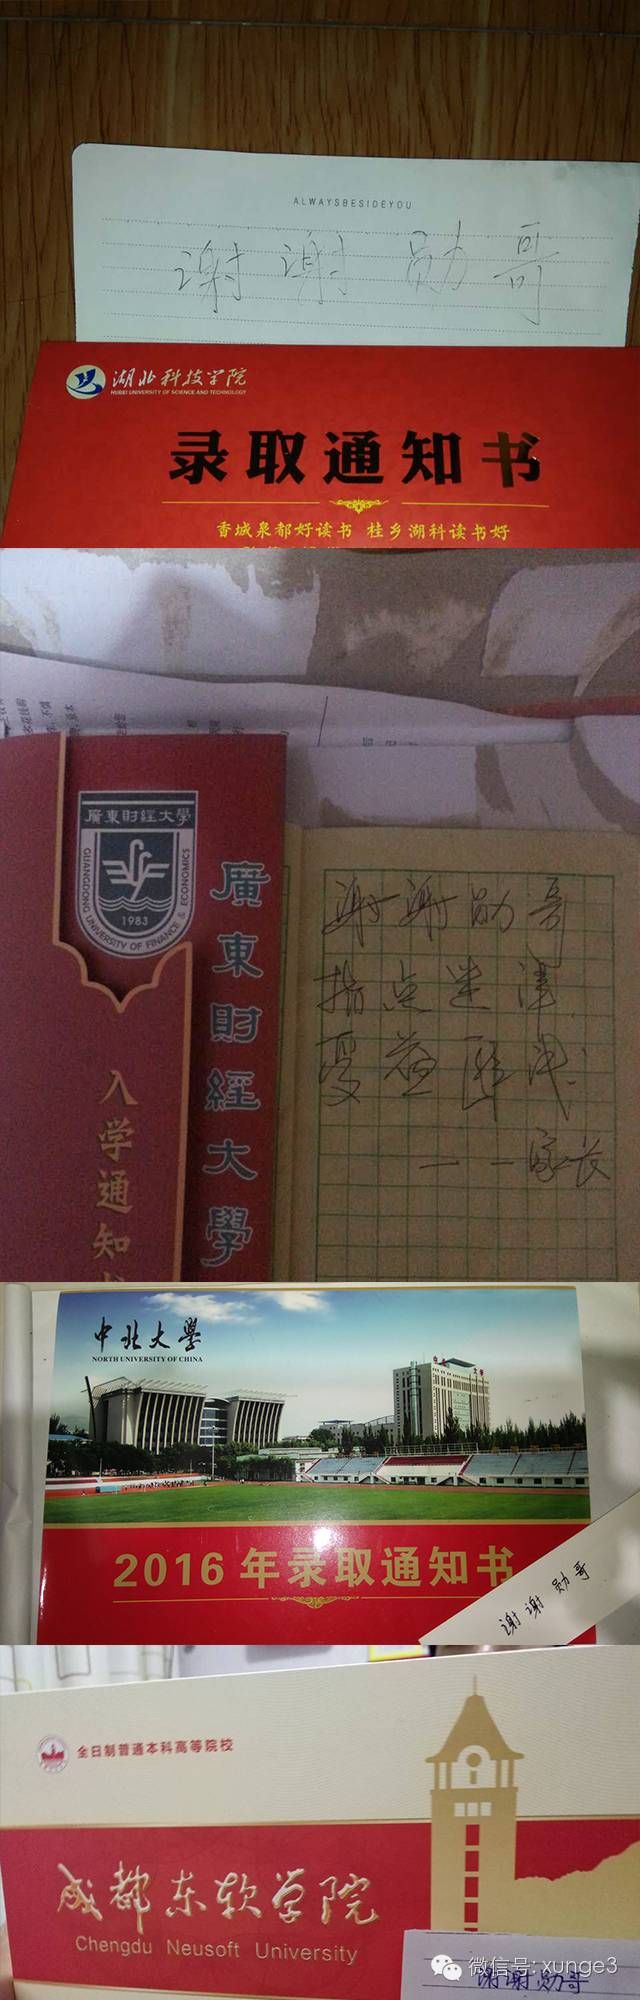 ALWAYSBESIDEYOU
谢谢勋哥
湖北科技学院
HUBEI UNIVERSITY OF SCIENCE AND TECHNOLOGY
录取通知书
香城泉都好读书 桂乡湖科读书好
廣東財經大學
GUANGDONG UNIVERSITY OF FINANCE & ECONOMICS
1983
廣東財經大學
入学通知
谢谢勋哥
指点迷津
受益匪浅!
——家长
中北大學
NORTH UNIVERSITY OF CHINA
2016年录取通知书
谢谢勋哥
全日制普通本科高等院校
成都东软学院
Chengdu Neusoft University
谢谢勋哥
微信号: xunge3